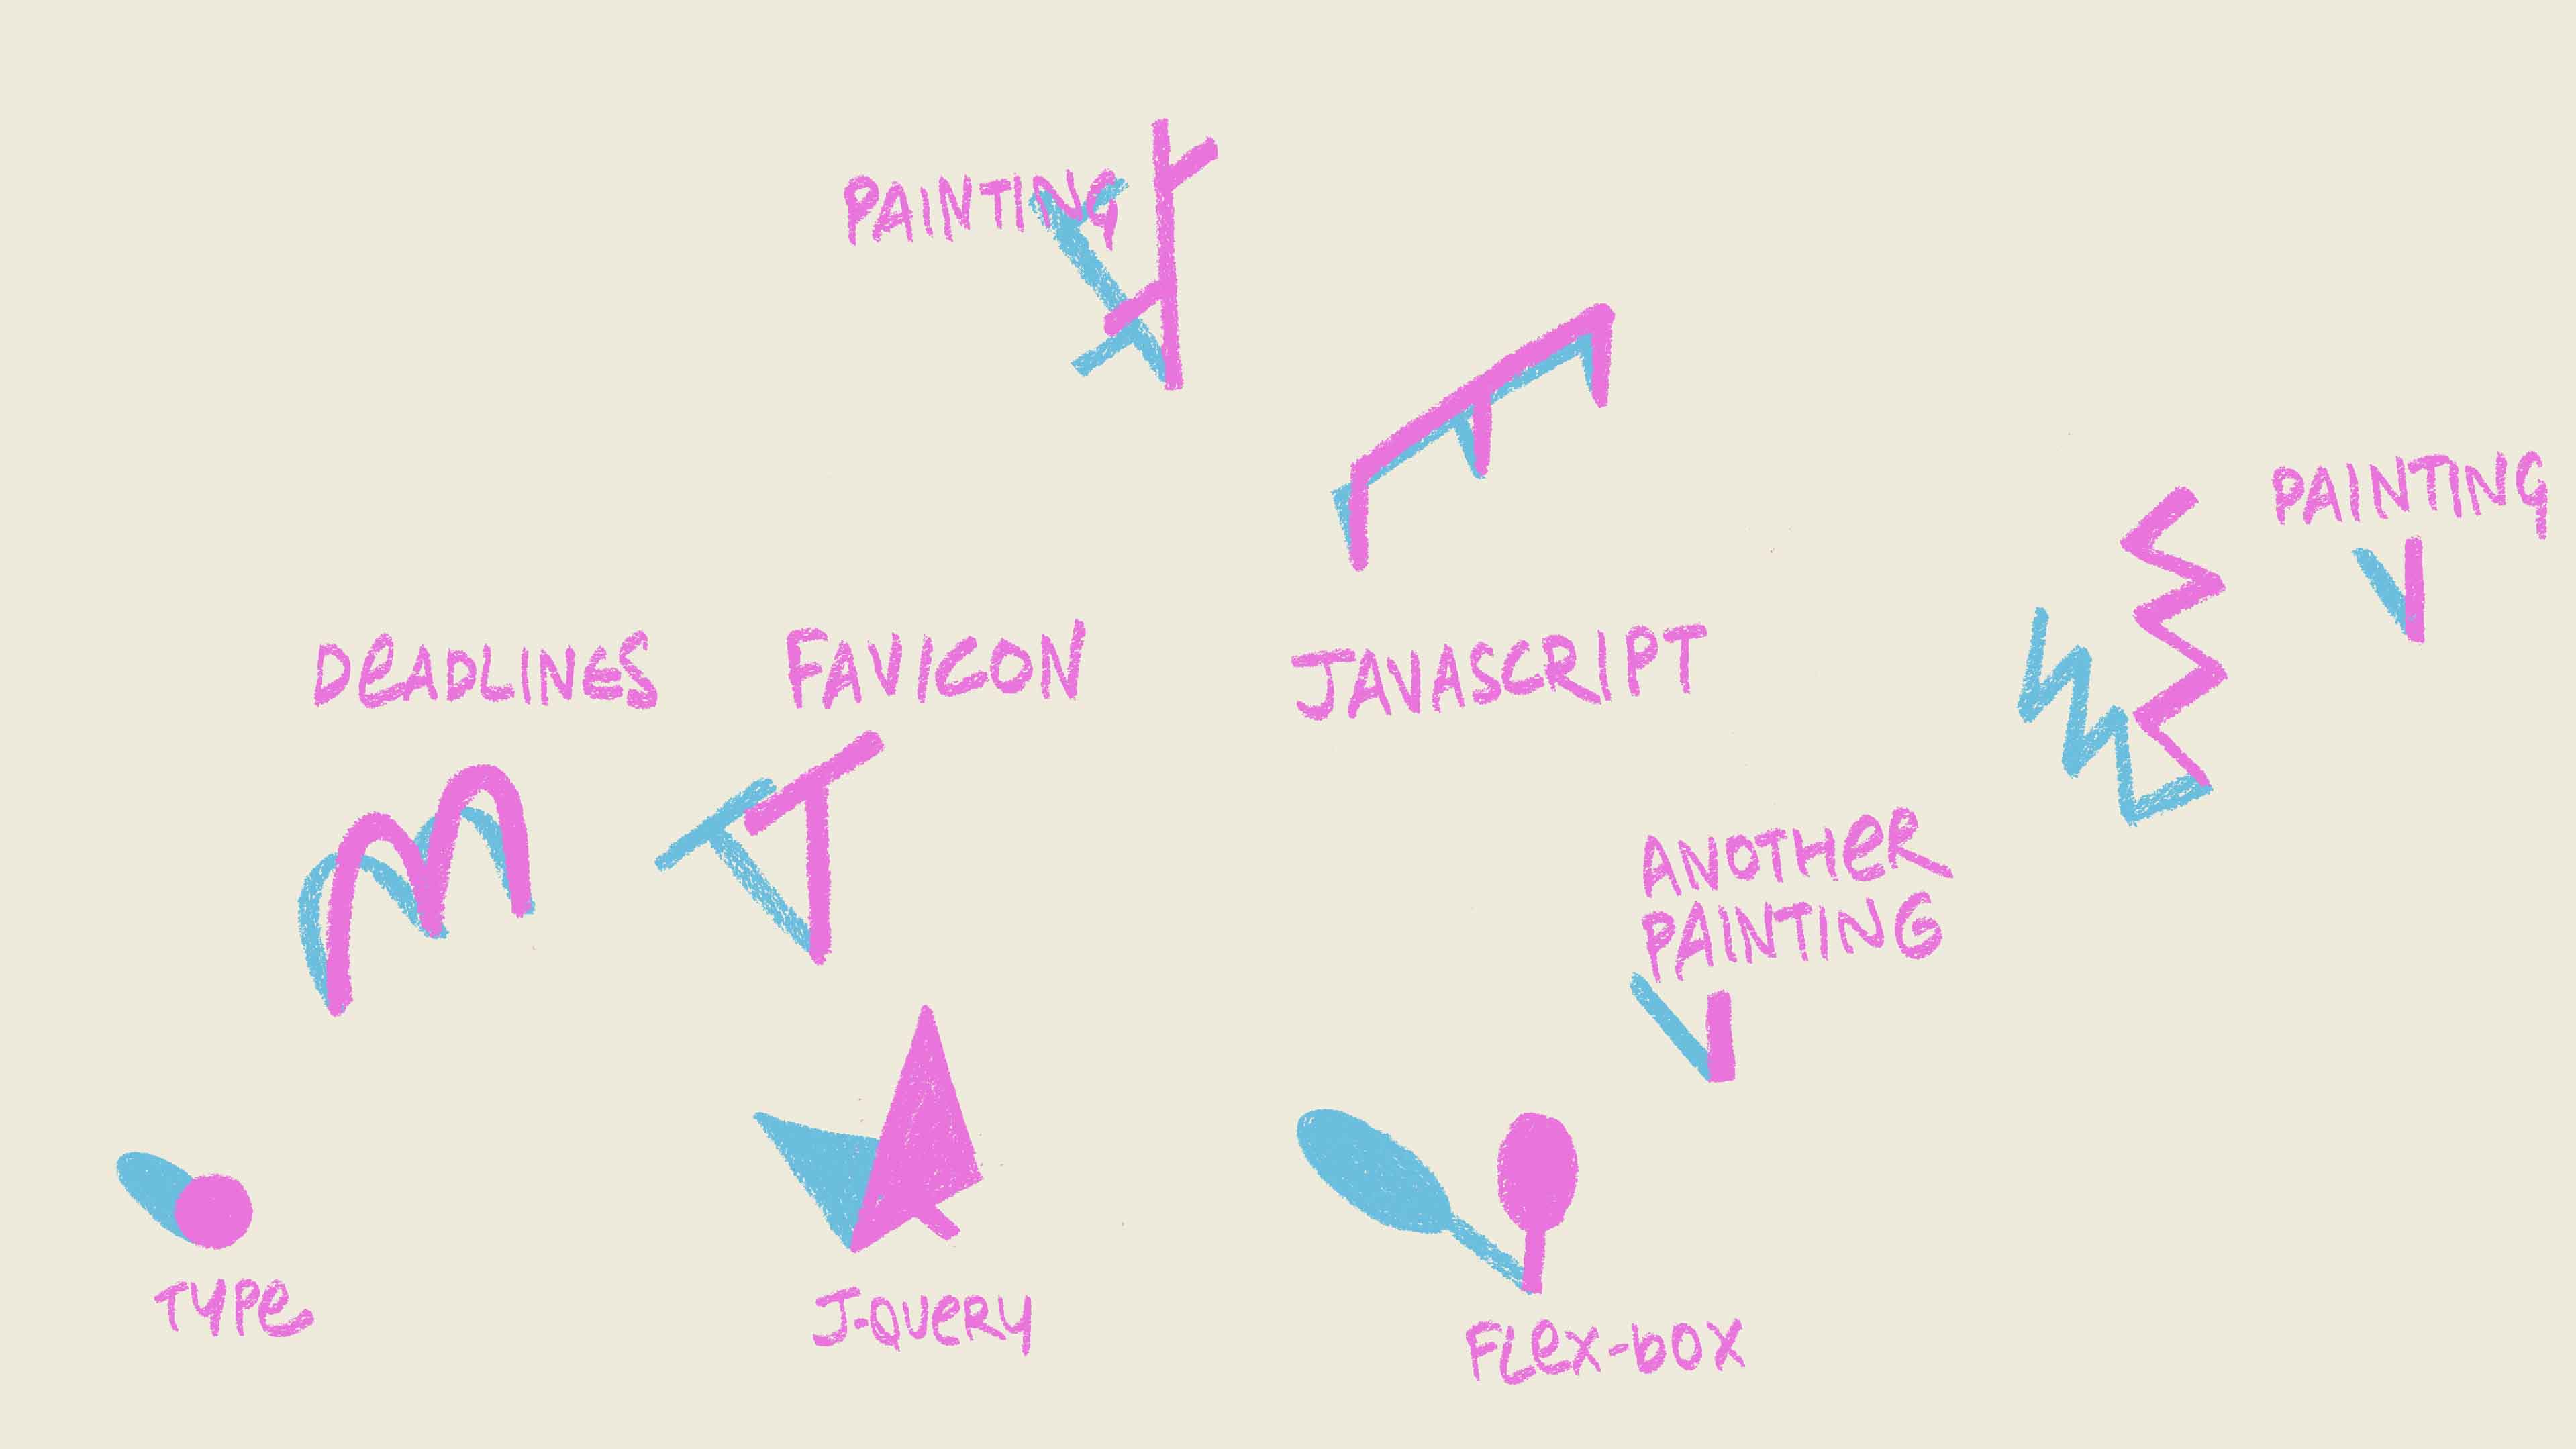 PAINTING
PAINTING
DeADLINeS
FAVICON
JAVASCRIPT
ANOTHeR
PAINTING
TYPe
J-QUeRY
FLex-box